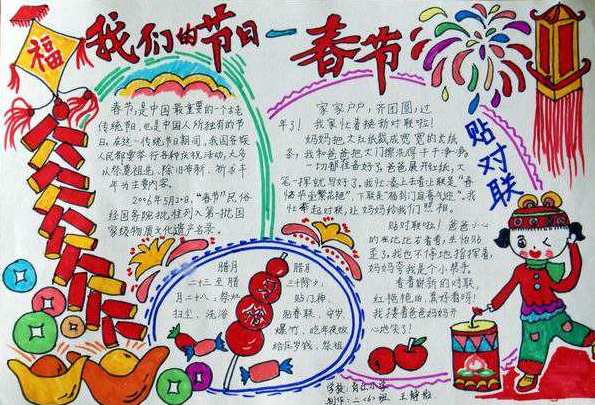 福
我们的节日—春节
春节,是中国最重要的一个古老
传统节日,也是中国人所独有的节
日。在这一传统节日期间,我国各族
人民都要举行各种庆祝活动,大多
以祭奠祖先、除旧布新、祈求丰
年为主要内容。
2006年5月20日,“春节”民俗
经国务院批准列入第一批国
家级物质文化遗产名录。
家家户户,齐团圆,过
年了!我家忙着换新对联啦!
妈妈把大红纸裁成宽宽的大纸
条,我和爸爸把大门擦洗得干干净净。
一切都准备好了,爸爸展开红纸,大
笔一挥就写好了。我忙念上去看
上联是“春
满华堂繁花艳”,下联是“福到门庭喜气迎”。我
忙举起对联,让妈妈给我们照相。
贴对联
贴对联啦!爸爸小心
的左比比右看看,生怕贴
歪了。我也不停地指挥着,
妈妈夸我是个小帮手。
看着崭新的对联
红艳艳的真好看呀!
我搂着爸爸妈妈开
心地笑了!
腊月
二十三至腊
月二十八,祭灶
扫尘、洗浴
腊月
三十除夕,
贴门神、
贴春联、守岁、
爆竹、吃年夜饭
给压岁钱、祭祖
学校:
制作:二〈6〉班 王静